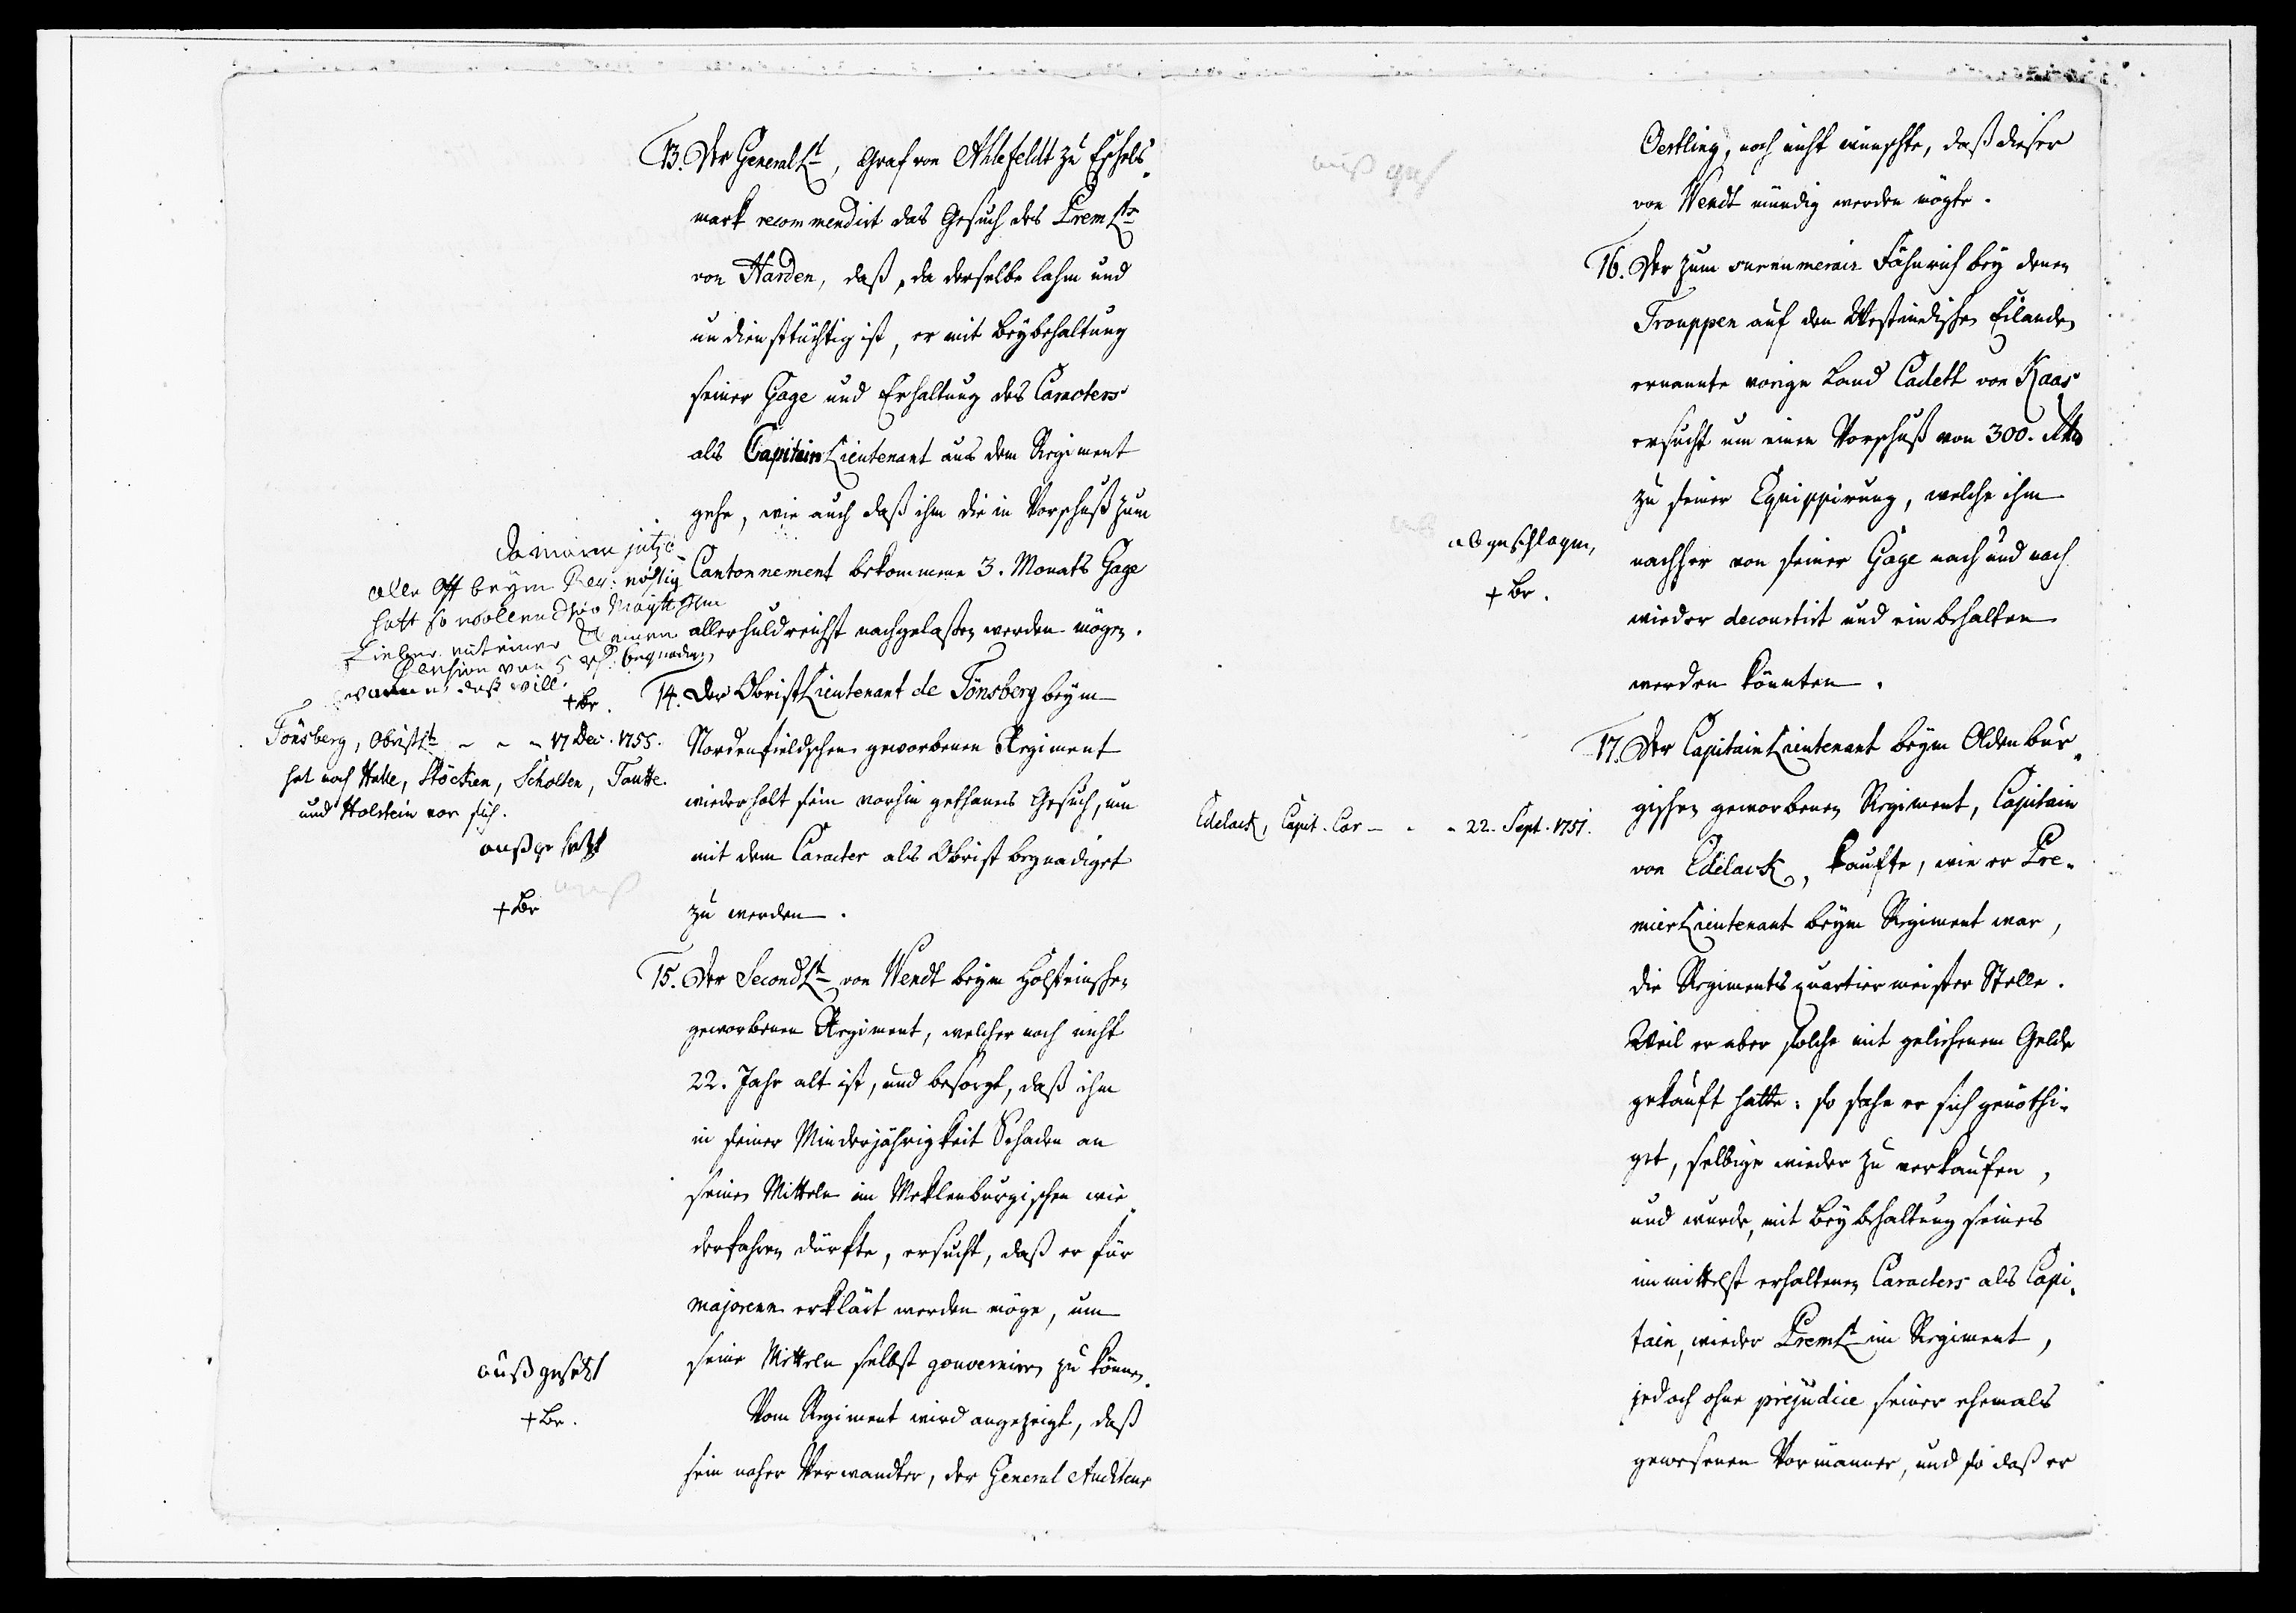 13. Der General Lt, Graf von Ahlefeldt zu Eschels-
mark recommendirt das Gesuch des Prem Lts
von Harden, daß, da derselbe lahm und
undiensttüchtig ist, er mit Beybehaltung
seiner Gage und Erhaltung des Caracters
als Capitain Lieutenant aus dem Regiment
gehe, wie auch daß ihm die in Vorschuß zum
Cantonnement bekommene 3. Monats Gage
allerhuldreichst nachgelaßen werden mögen.
alle Off beym Reg: nöthig
hatt so wollen Ihro Maytt ihn
Lieber mit einer kleinen
Pension von 5 begnadigen
daß will.
+ Br.
14. Der Obrist Lieutenant de Tönsberg beym
Nordenfieldschen geworbenen Regiment
wiederholt sein vorhin gethanes Gesuch, um
mit dem Caracter als Obrist begnadiget
zu werden.
Tönsberg, Obristlt - - - 17 Dec. 1755.
hat noch Stöcken, Scholten,
und Holstein vor sich.
außgesetzt
+ Br
15. Der Second Lt von Wendt beym Holsteinschen
geworbenen Regiment, welcher noch nicht
22. Jahr alt ist, und besorgt, daß ihm
in seiner Minderjährigkeit Schaden an
seinen Mitteln im Meklenburgischen wie-
derfahren dürfte, ersucht, daß er für
majorenn erklärt werden möge, um
seine Mitteln selbst gouverniren zu können.
Vom Regiment wird angezeigt, daß
sein naher Verwandter, der General Auditeur
außgesetzt
+ Br.
Oertling, noch nicht wünschte, daß dieser
von Wendt mündig werden mögte.
16. Der zum surnumerair Fähnrich bey denen
Trouppen auf den Westindischen Eilanden
ernannte vorige Land Cadett von Kaas
ersucht um einen Vorschuß von 300. Rth
zu seiner Equippirung, welche ihm
nachher von seiner Gage nach und nach
wieder decourtirt und einbehalten
werden könnten.
abgeschlagen,
+ Br.
17. Der Capitain Lieutenant beym Oldenbur-
gischen geworbenen Regiment, Capitain
von Edelack, kaufte, wie er Pre-
mier Lieutenant beym Regiment war,
die Regimentsquartiermeister Stelle.
Weil er aber solche mit geliehenem Gelde
gekauft hatte: so sahe er sich genöthi-
get, selbige wieder zu verkaufen,
und wurde, mit Beybehaltung seines
immittelst erhaltenen Caracters als Capi-
tain, wieder Prem Lt im Regiment,
jedoch ohne prejudice seiner ehemals
gewesenen Vormänner, und so daß er
Edelack, Capit. Car - - - 22. Sept. 1751.